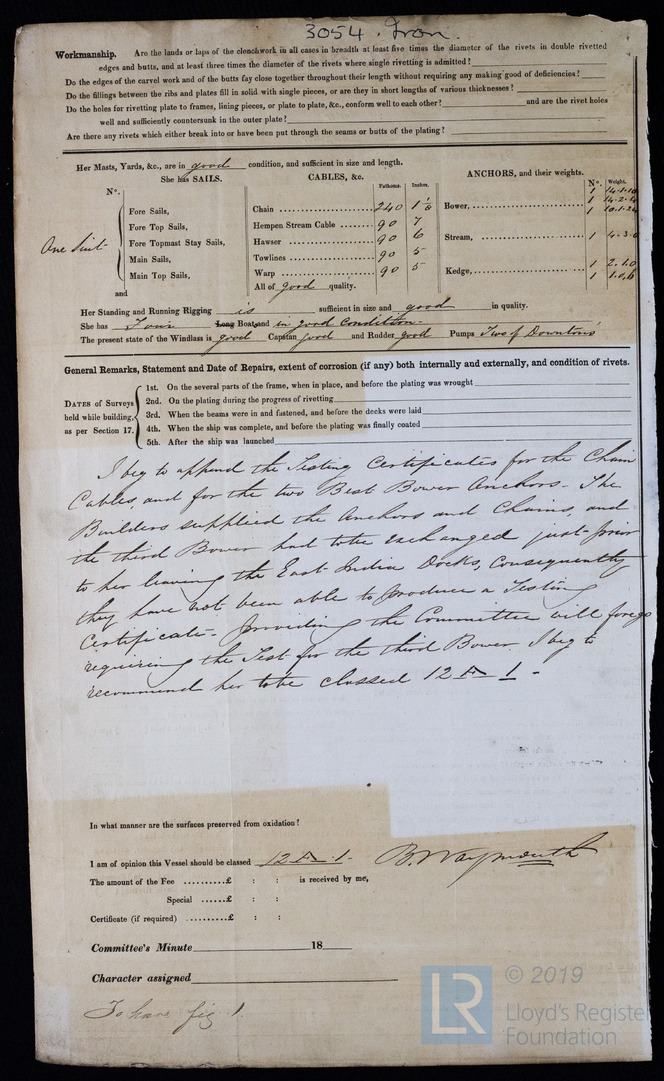 3054. Iron.
Workmanship. Are the lands or laps of the clenchwork in all cases in breadth at least five times the diameter of the rivets in double rivetted
edges and butts, and at least three times the diameter of the rivets where single rivetting is admitted?
Do the edges of the carvel work and of the butts fay close together throughout their length without requiring any making good of deficiencies?
Do the fillings between the ribs and plates fill in solid with single pieces, or are they in short lengths of various thicknesses?
Do the holes for rivetting plate to frames, lining pieces, or plate to plate, &c., conform well to each other? and are the rivet holes
well and sufficiently countersunk in the outer plate?
Are there any rivets which either break into or have been put through the seams or butts of the plating?
Her Masts, Yards, &c., are in good condition, and sufficient in size and length.
She has SAILS. CABLES, &c. ANCHORS, and their weights.
No. Fathoms. Inches. No. Weight.
1 14.1.10
1 14.2.4
Fore Sails, Chain 240 1 1/8 Bower, 1 10.1.24
Fore Top Sails, Hempen Stream Cable 90 7
One Suit Fore Topmast Stay Sails, Hawser 90 6 Stream, 1 4.3.0
Main Sails, Towlines 90 5
Main Top Sails, Warp 90 5 Kedge, 1 2.1.0
and All of good quality. 1 1.0.6
Her Standing and Running Rigging is sufficient in size and good in quality.
She has Four Long Boat and in good Condition.
The present state of the Windlass is good Capstan good and Rudder good Pumps Two of Downtons
General Remarks, Statement and Date of Repairs, extent of corrosion (if any) both internally and externally, and condition of rivets.
DATES of Surveys held while building, as per Section 17.
1st. On the several parts of the frame, when in place, and before the plating was wrought
2nd. On the plating during the progress of rivetting
3rd. When the beams were in and fastened, and before the decks were laid
4th. When the ship was complete, and before the plating was finally coated
5th. After the ship was launched
I beg to append the Testing Certificates for the Chain
Cables, and for the two Best Bower Anchors. The
Builders supplied the Anchors and Chains, and
the third Bower had to be exchanged just prior
to her leaving the East India Docks, Consequently
they have not been able to produce a Testing
Certificate. Providing the Committee will forego
requiring the Test for the third Bower. I beg to
recommend her to be classed 12 A 1 -
In what manner are the surfaces preserved from oxidation?
I am of opinion this Vessel should be classed 12 A 1. B. Waymouth
The amount of the Fee ..........£ : : is received by me,
Special ......£ : :
Certificate (if required) ..........£ : :
Committee's Minute 18
Character assigned
To have fig 1.
LR © 2019
Lloyd's Register
Foundation